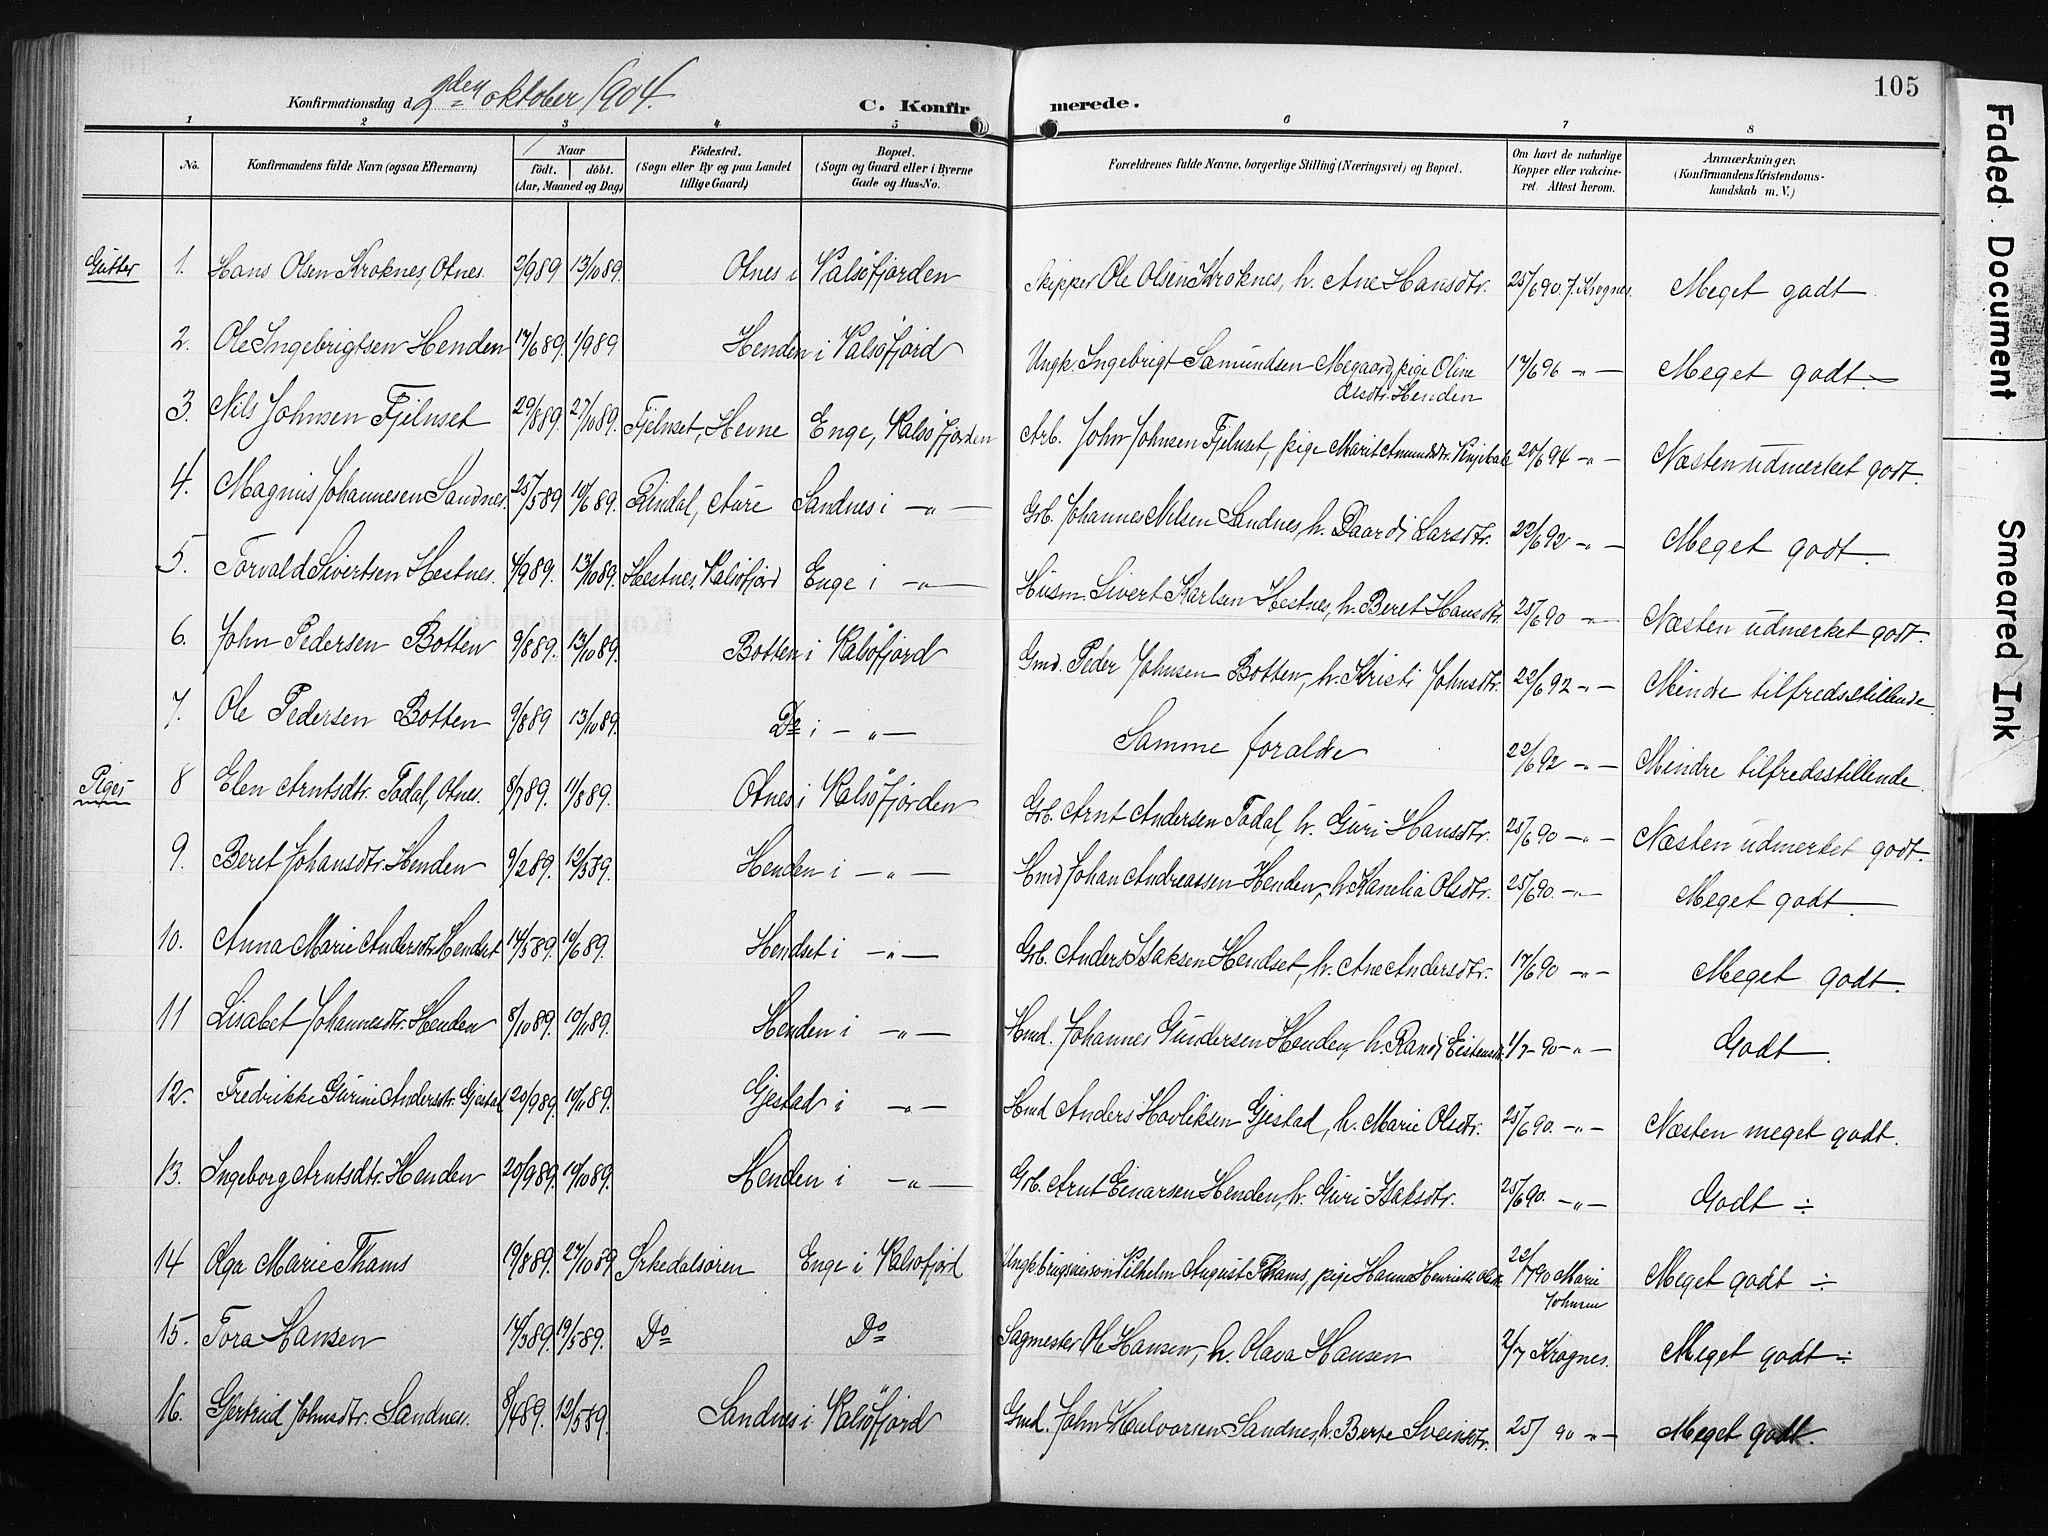 105
Konfirmationsdag d. 2den oktober 1904.
C. Konfirmerede.
1 2 3 4 5 6 7 8
No. Konfirmandens fulde Navn (ogsaa Efternavn) Naar født. døbt. (Aar, Maaned og Dag) Fødested. (Sogn eller By og paa Landet tillige Gaard) Bopæl. (Sogn og Gaard eller i Byerne Gade og Hus-No. Forældrenes fulde Navne, borgerlige Stilling (Næringsvei) og Bopæl. Om havt de naturlige Kopper eller vakcineret. Attest herom. Anmærkninger. (Konfirmandens Kristendomskundskab m. V.)
Gutter 1. Hans Olsen Kroknes, Otnes. 2/9 89 13/10 89. Otnes i Valsöfjorden Skipper Ole Olsen Kroknes, h. Ane Hansdtr. 25/6 90 J. Krognes. Meget godt
2. Ole Ingebrigtsen Henden 17/6 89. 1/9 89 Henden i Valsöfjord Ungk. Ingebrigt Samundsen Megaard, pige Oline Olsdtr. Henden 17/6 96 -"- Meget godt.
3. Nils Johnsen Fjelnset 29/8 89. 27/10 89. Fjelnset, Hevne Enge, Valsöfjorden Arb. John Johnsen Fjelnset, pige Marit Amundsdtr. 20/6 94 -"- Næsten udmerket godt.
4. Magnus Johannesen Sandnes. 25/5 89 10/6 89. Rindal, Aure Sandnes i -"- Grb. Johannes Nilsen Sandnes, h. Baardi Larsdtr. 22/6 92 -"- Meget godt.
5. Torvald Sivertsen Hestnes. 4/9 89. 13/10 89. Hestnes. Valsöfjord Enge i -"- Husm. Sivert Karlsen Hestnes, h. Beret Hansdtr. 25/6 90 -"- Næsten udmerket godt.
6. John Pedersen Botten 9/8 89. 13/10 89. Botten i Valsöfjord Gmd. Peder Johnsen Botten, h. Kristi Johnsdtr. 22/6 92 -"- Mindre tilfredsstillende.
7. Ole Pedersen Botten 9/8 89 13/10 89. Do i -"- Samme foraldre 22/6 92 -"- Mindre tilfredsstillende.
Piger 8 Elen Arntsdtr. Todal, Otnes. 8/7 89. 11/8 89. Otnes i Valsöfjorden Grb. Arnt Andersen Todal, h. Guri Hansdtr. 25/6 90 -"- Næsten udmerket godt.
9. Beret Johansdtr. Henden 9/2 89. 12/3 89. Henden i -"- Hmd Johan Andreassen Henden, h. Kanelia Olsdtr. 25/6 90. -"- Meget godt
10. Anna Marie Andersdtr. Hendset 14/5 89. 10/6 89. Hendset i -"- Grb. Anders Isaksen Hendset, h. Ane Andersdtr. 17/6 90 -"- Meget godt.
11 Lisabet Johannesdtr. Henden 8/10 89. 10/11 89. Henden i -"- Hmd. Johannes Gundersen Henden, h. Randi Eistensdtr. 1/7 - 90 -"- Godt.
12. Fredrikke Gurine Andersdtr. Gjestad 20/9 89. 10/11 89. Gjestad i -"- Hmd Anders Havliksen Gjestad, h. Marie Olsdtr. 25/6 90. -"- Næsten meget godt.
13. Ingeborg Arntsdtr. Henden 20/9 89. 19/10 89. Henden i -"- Grb. Arnt Einarsen Henden, h. Guri Isaksdtr. 25/6 90. -"- Godt ÷
14 Olga Marie Thams 19/8 89. 27/10 89 Örkedalsören Enge i Valsöfjord Vilhelm August Thams, pige Hanna Henriette 22/7 90 Marie Johnsen Meget godt ÷
15. Tora Hansen 14/3 89. 19/5 89. Do Do Sagmester Ole Hansen, h. Olava Hansen 2/7 Krognes. Meget godt ÷
16. Gjertrud Johnsdtr. Sandnes. 8/4 89. 12/5 89. Sandnes i Valsöfjord Gmd. John Halvorsen Sandnes, h. Berte Sveinsdtr. 25/ 90 -"- Meget godt.
Faded Document
Smeared Ink